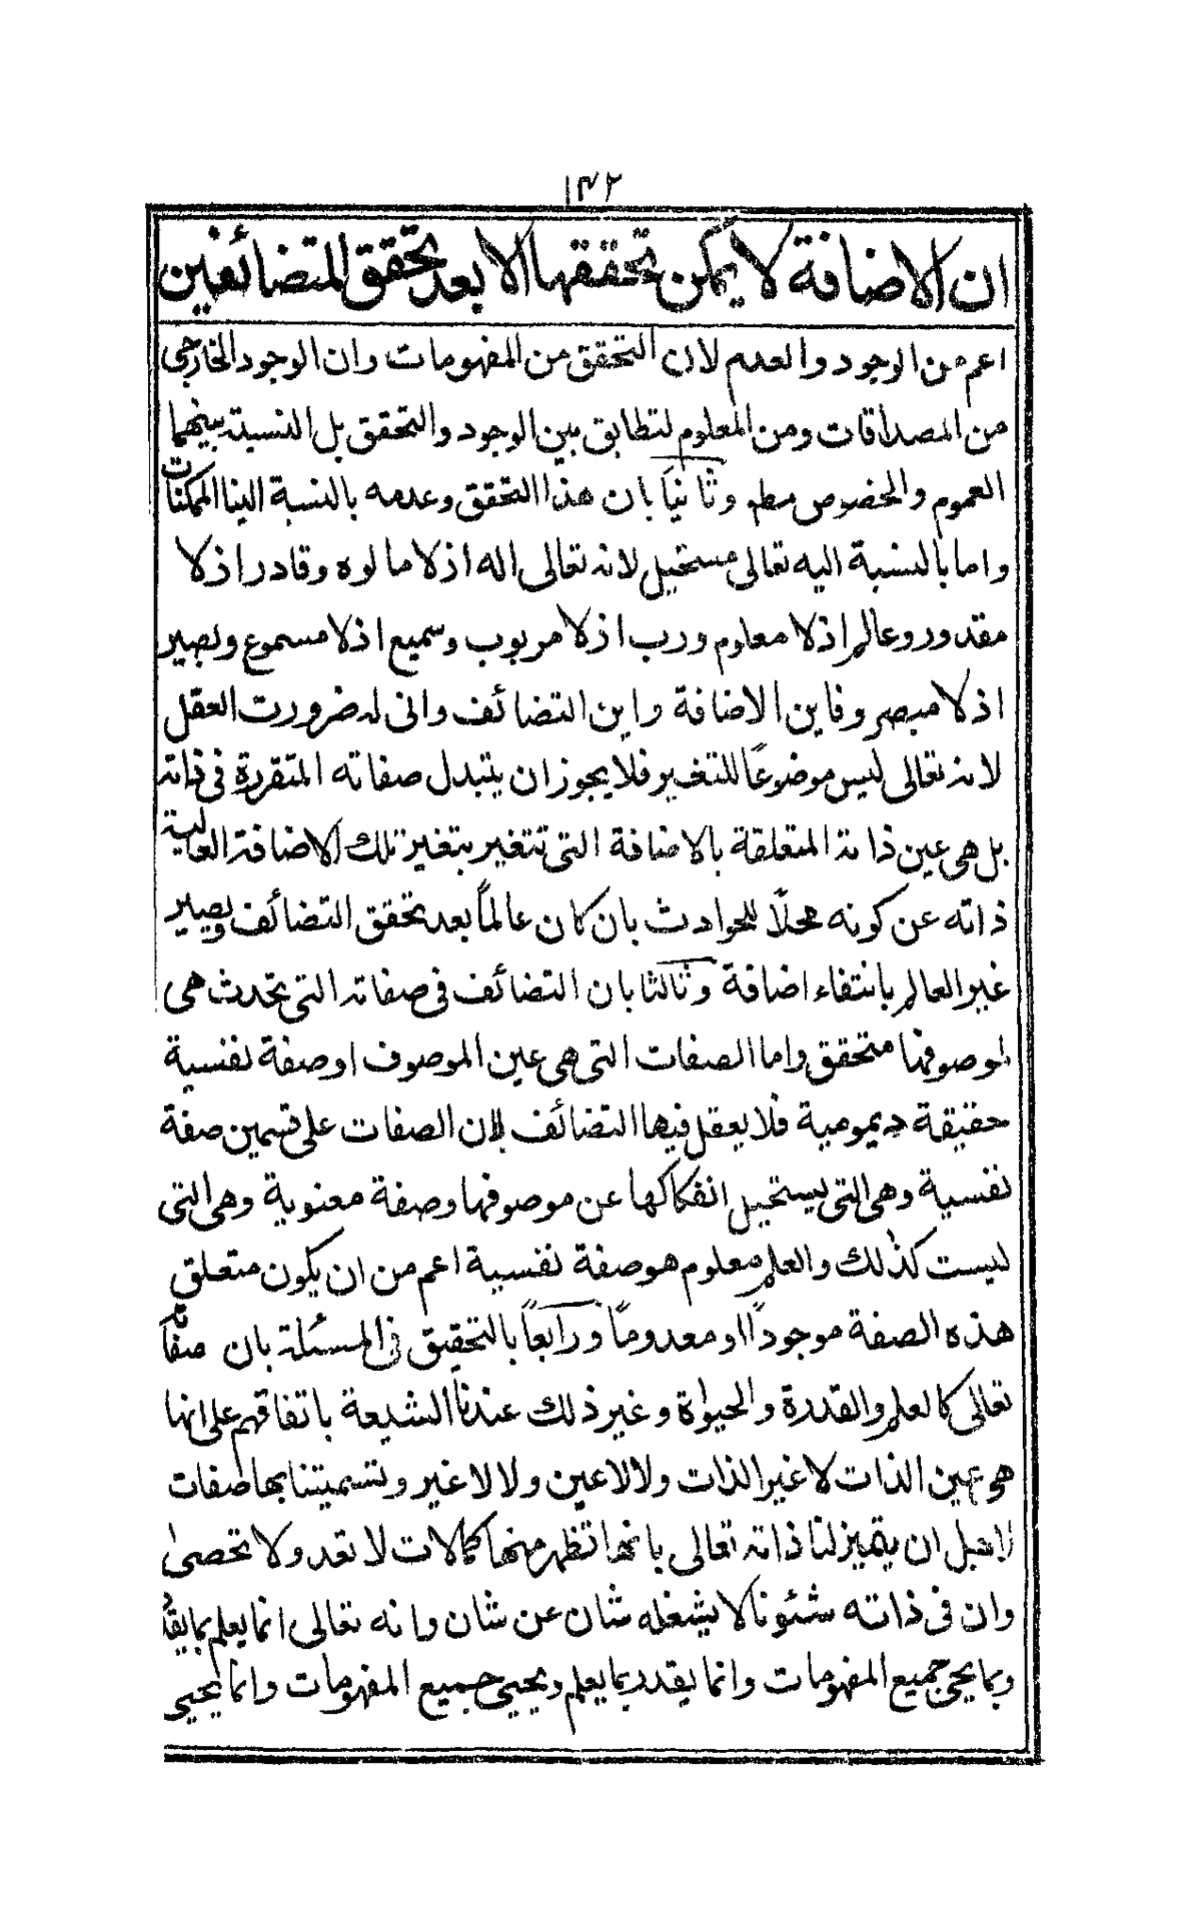 ۱۴۲
ان الاضافة لا يمكن تحققها الا بعد تحقق المتضائفين
اعم من الوجود والعدم لان التحقق من المفهومات وان الوجود الخارجى
من المصداقات ومن المعلوم لتطابق بين الوجود والتحقق بل النسبة بينهما
العموم والخصوص مطم وثانياً بان هذا التحقق وعدمه بالنسبة الينا الممكنات
واما بالنسبة اليه تعالى مستحيل لانه تعالى اله اذ لا مالوه وقادر اذ لا
مقدور وعالم اذ لا معلوم ورب اذ لا مربوب وسميع اذ لا مسموع وبصير
اذ لا مبصر وفاين الاضافة واين التضائف وانى له ضرورت العقل
لانه تعالى ليس موضوعاً للتغير فلا يجوز ان يتبدل صفاته المتقررة فى ذاته
بل هى عين ذاته المتعلقة بالاضافة التى تتغير بتغير تلك الاضافة العالية
ذاته عن كونه محلاً للحوادث بان كان عالماً بعد تحقق التضائف ويصير
غير العالم بانتفاء اضافة وثالثا بان التضائف فى صفاته التى تحدث هى
لموصوفها متحقق واما الصفات التى هى عين الموصوف او صفة نفسية
حقيقة ديمومية فلا يعقل فيها التضائف لان الصفات على قسمين صفة
نفسية وهى التى يستحيل انفكاكها عن موصوفها وصفة معنوية وهى التى
ليست كذلك والعلم معلوم هو صفة نفسية اعم من ان يكون متعلق
هذه الصفة موجوداً او معدوماً ورابعاً بالتحقيق فى المسئلة بان
تعالى كالعلم والقدرة والحيوٰة وغير ذلك عندنا الشيعة باتفاقهم على انها
هى عين الذات لا غير الذات ولا لا عين ولا لا غير وتسميتنا بها صفات
لاجل ان يتميز لنا ذاته تعالى بانها تظهر منها كمالات لا تعد ولا تحصىٰ
وان فى ذاته شئونا لا يشغله شان عن شان وانه تعالى انما يعلم بما يقد
وبما يحى جميع المفهومات وانما يقدر بما يعلم ويحيى جميع المفهومات وانما يحيى